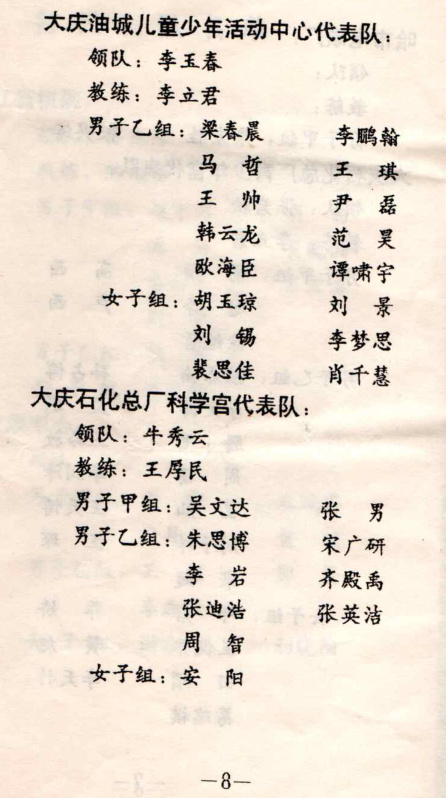 大庆油城儿童少年活动中心代表队：
领队：李玉春
教练：李立君
男子乙组：梁春晨 李鹏翰
马 哲 王 琪
王 帅 尹 磊
韩云龙 范 昊
欧海臣 谭啸宇
女子组：胡玉琼 刘 景
刘 锡 李梦思
裴思佳 肖千慧
大庆石化总厂科学宫代表队：
领队：牛秀云
教练：王厚民
男子甲组：吴文达 张 男
男子乙组：朱思博 宋广研
李 岩 齐殿禹
张迪浩 张英洁
周 智
女子组：安 阳
—8—